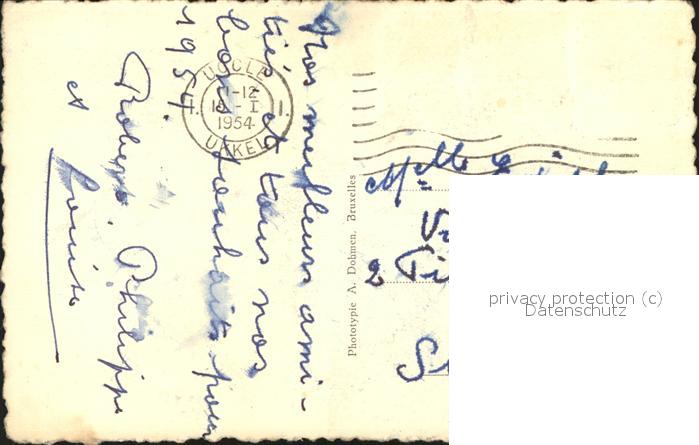 Nos meilleurs ami-
tiés et tous nos
bons souhaits pour
1954.
Robert. Philippe
et Louise
UCCLE
1954
UKKEL
Phototypie A. Dohmen, Bruxelles
Melle
2
privacy protection (c)
Datenschutz